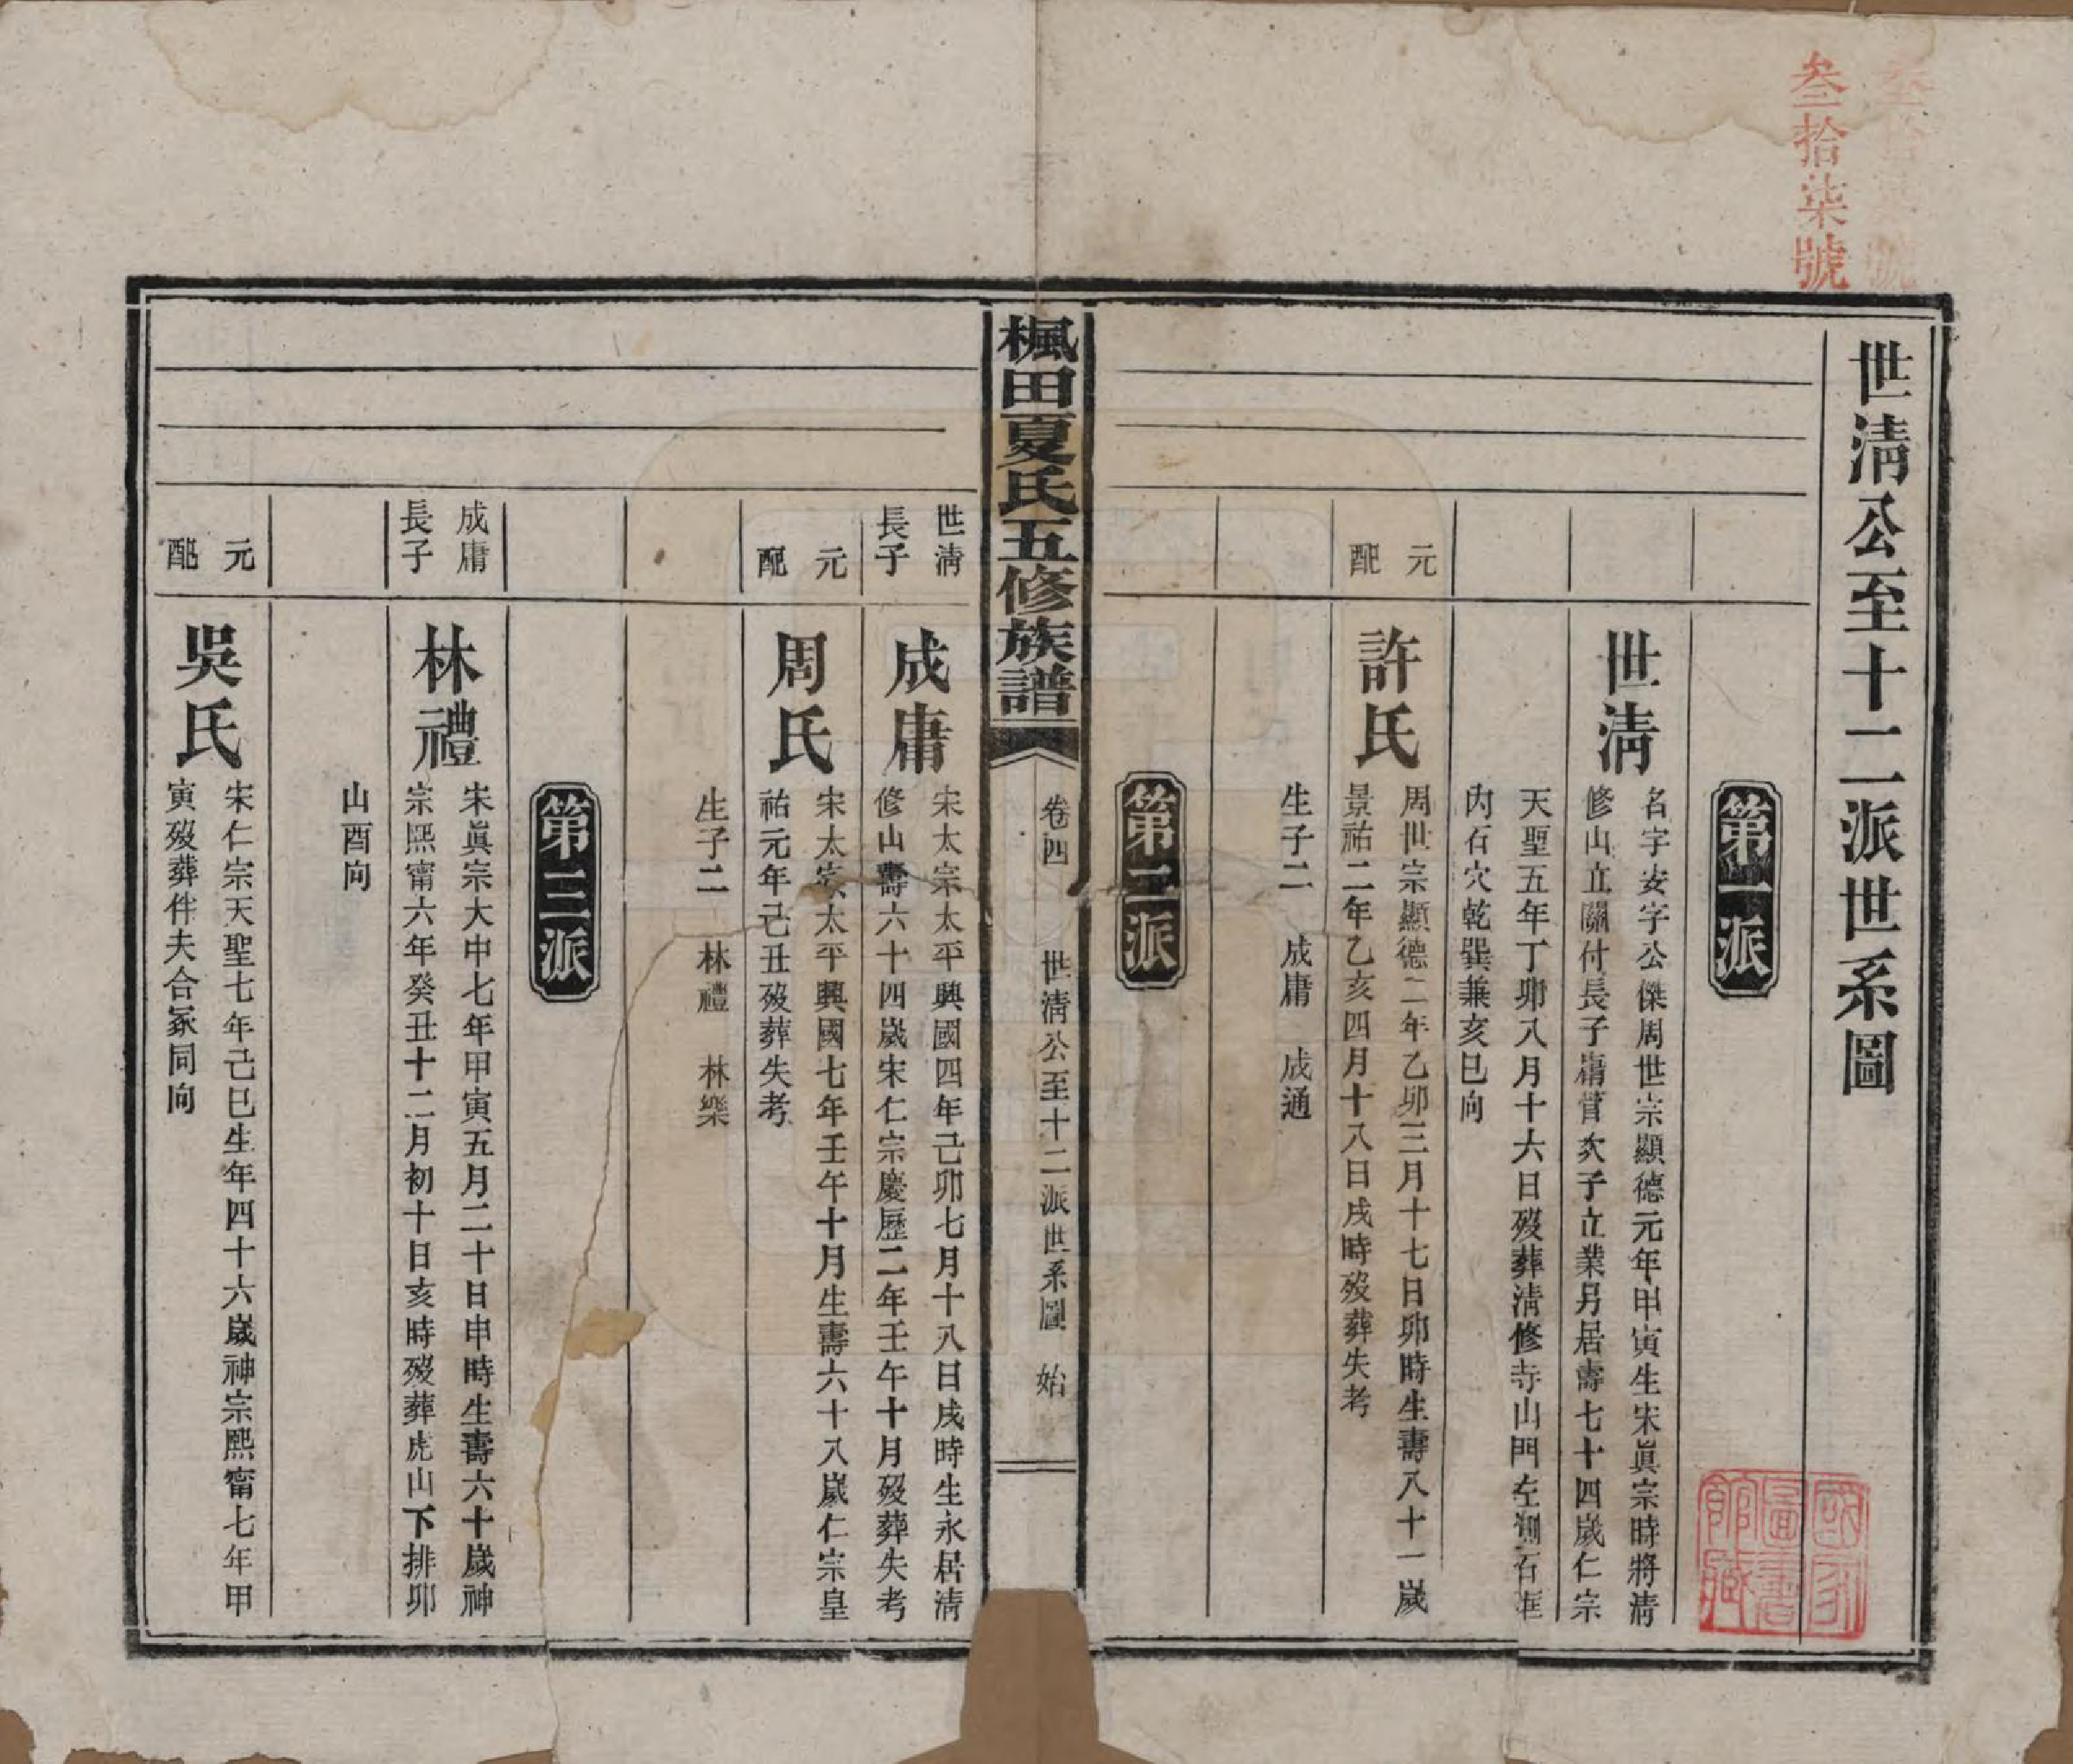 叁拾柒號
世清公至十二派世系圖
第一派
世清
名字安字公傑周世宗顯德元年甲寅生宋眞宗時將清
修山立關付長子庸管次子立業另居壽七十四歲仁宗
天聖五年丁卯八月十六日歿葬清修寺山門左測石框
內石穴乾巽兼亥巳向
元
配
許氏
周世宗顯德二年乙卯三月十七日卯時生壽八十一歲
景祐二年乙亥四月十八日戌時歿葬失考
生子二 成庸 成通
第二派
楓田夏氏五修族譜
卷四
世清公至十二派世系圖 始
世清
長子
成庸
宋太宗太平興國四年己卯七月十八日戌時生永居清
修山壽六十四歲宋仁宗慶歷二年壬午十月歿葬失考
元
配
周氏
宋太宗太平興國七年壬午十月生壽六十八歲仁宗皇
祐元年己丑歿葬失考
生子二 林禮 林樂
第三派
成庸
長子
林禮
宋眞宗大中七年甲寅五月二十日申時生壽六十歲神
宗熙甯六年癸丑十二月初十日亥時歿葬虎山下排卯
山酉向
元
配
吳氏
宋仁宗天聖七年己巳生年四十六歲神宗熙甯七年甲
寅歿葬伴夫合冢同向
國家
圖書
館藏